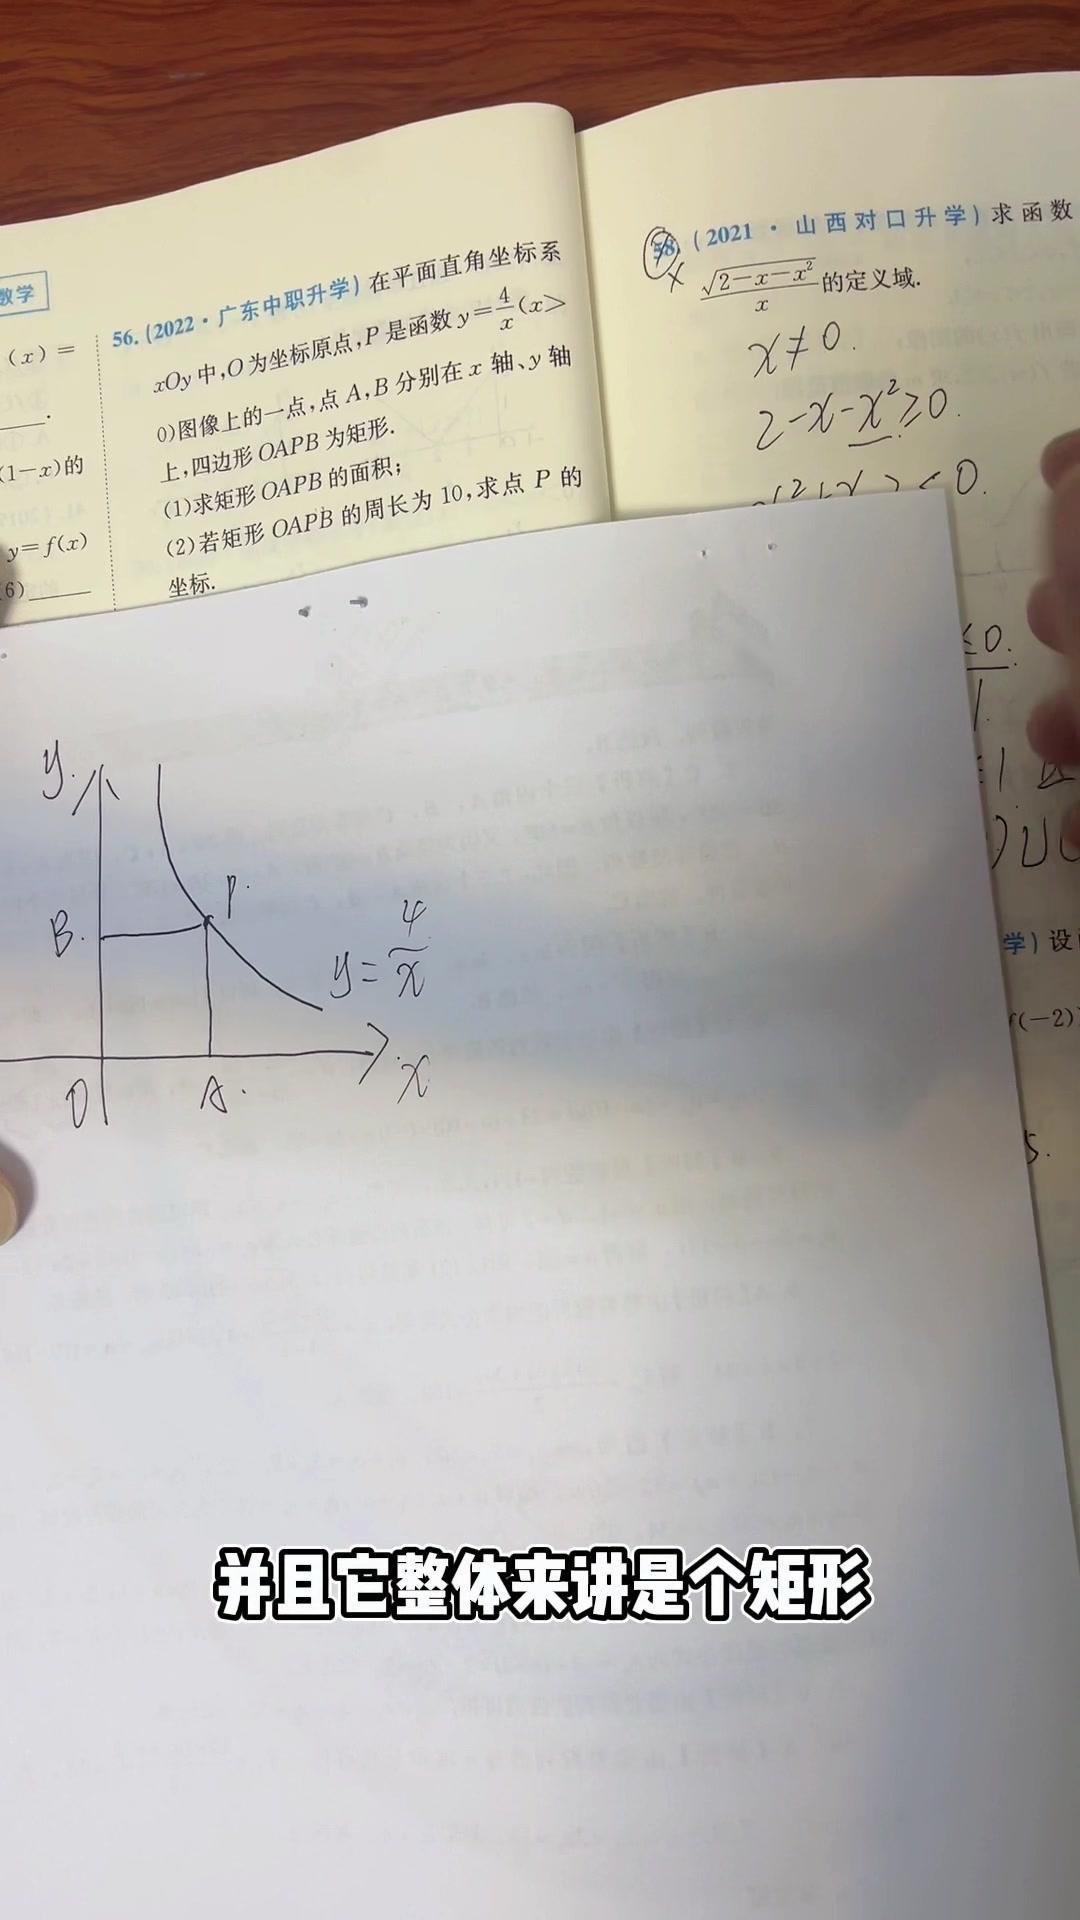 数学
(x)=
(1-x)的
y=f(x)
6)
56.(2022·广东中职升学)在平面直角坐标系
xOy中,O为坐标原点,P是函数y=4/x(x>
0)图像上的一点,点A,B分别在x轴、y轴
上,四边形OAPB为矩形.
(1)求矩形OAPB的面积;
(2)若矩形OAPB的周长为10,求点P的
坐标.
58.(2021·山西对口升学)求函数
√(2-x-x²)/x的定义域.
x≠0.
2-x-x²≥0.
≤0.
学)设
f(-2)
5.
y.
B.
P.
y=4/x
O
A.
x
并且它整体来讲是个矩形